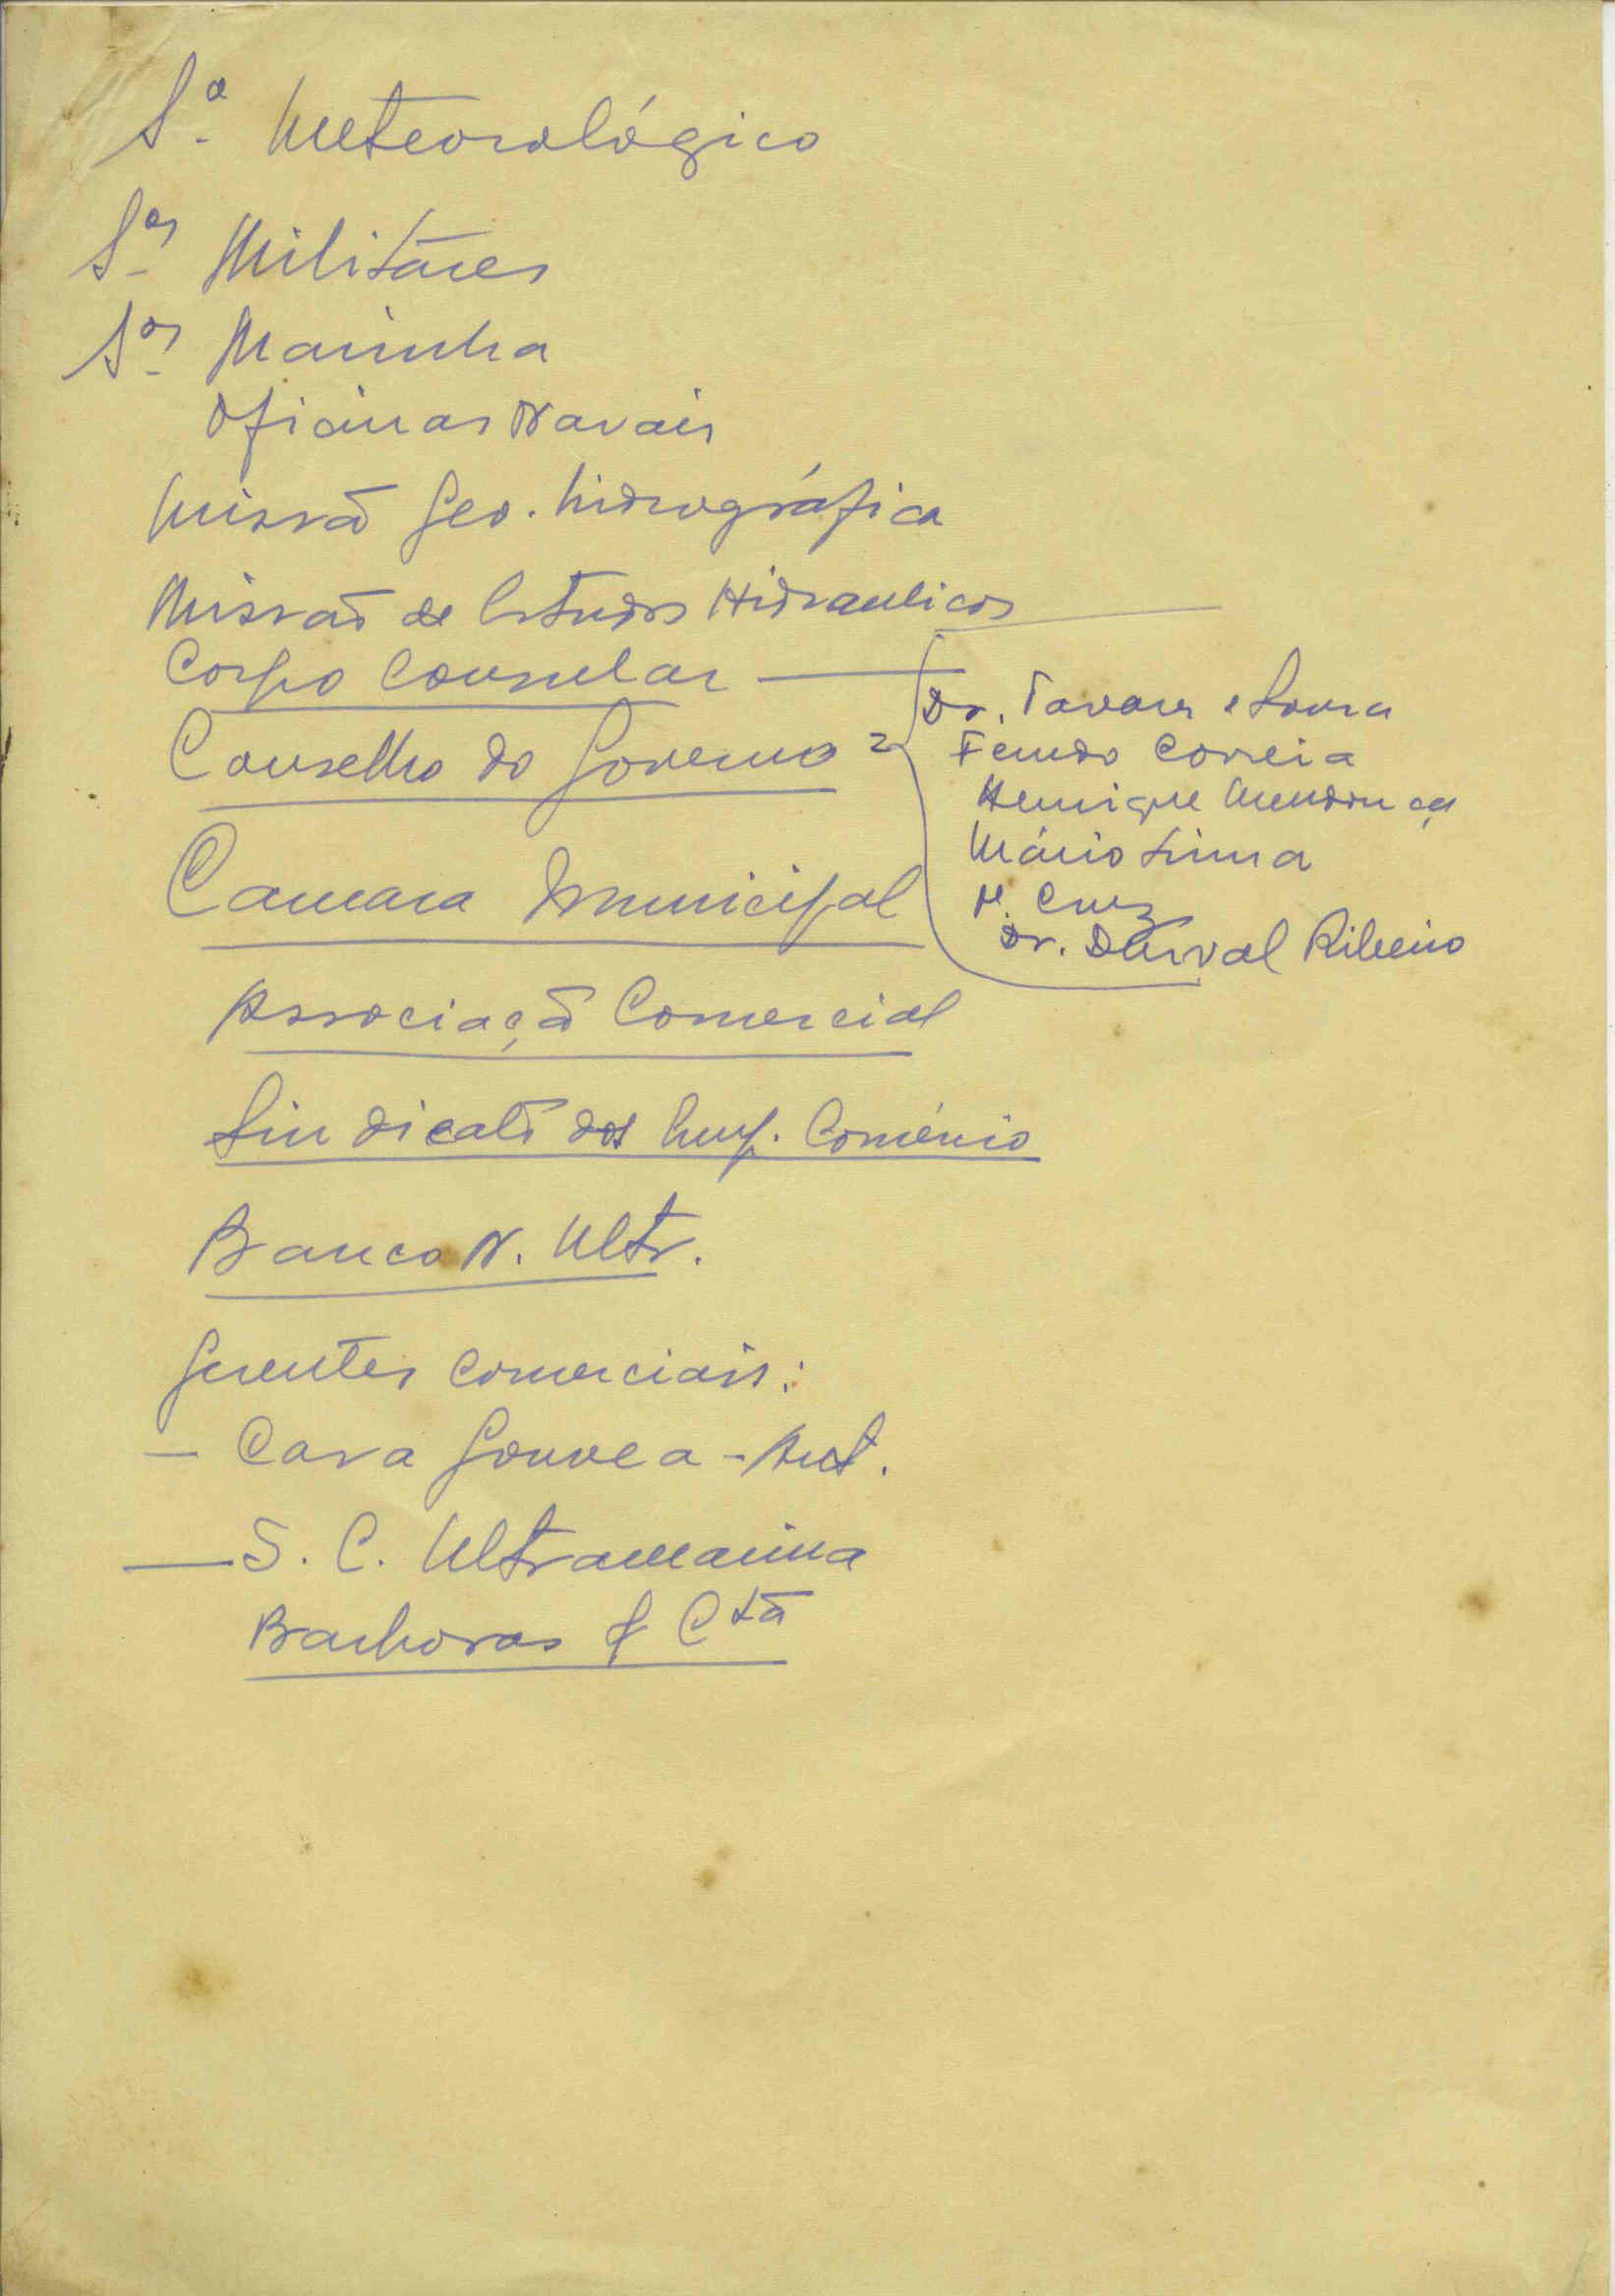 Sº Meteorológico
Sos Militares
Sos Marinha
Oficinas Navais
Missão Geo. hidrográfica
Missão de Estudos Hidraulicos
Corpo Consular —
Conselho do Governo
Dr. Tavares e Sousa
Fernando Correia
Henrique Mendonça
Mário Lima
M. Cruz
Dr. Durval Ribeiro
Camara Municipal
Associação Comercial
Sindicato dos Emp. Comércio
Banco N. Ultr.
Gerentes comerciais:
— Casa Gouvea - Ant.
— S. C. Ultramarina
Barbosas & Cta